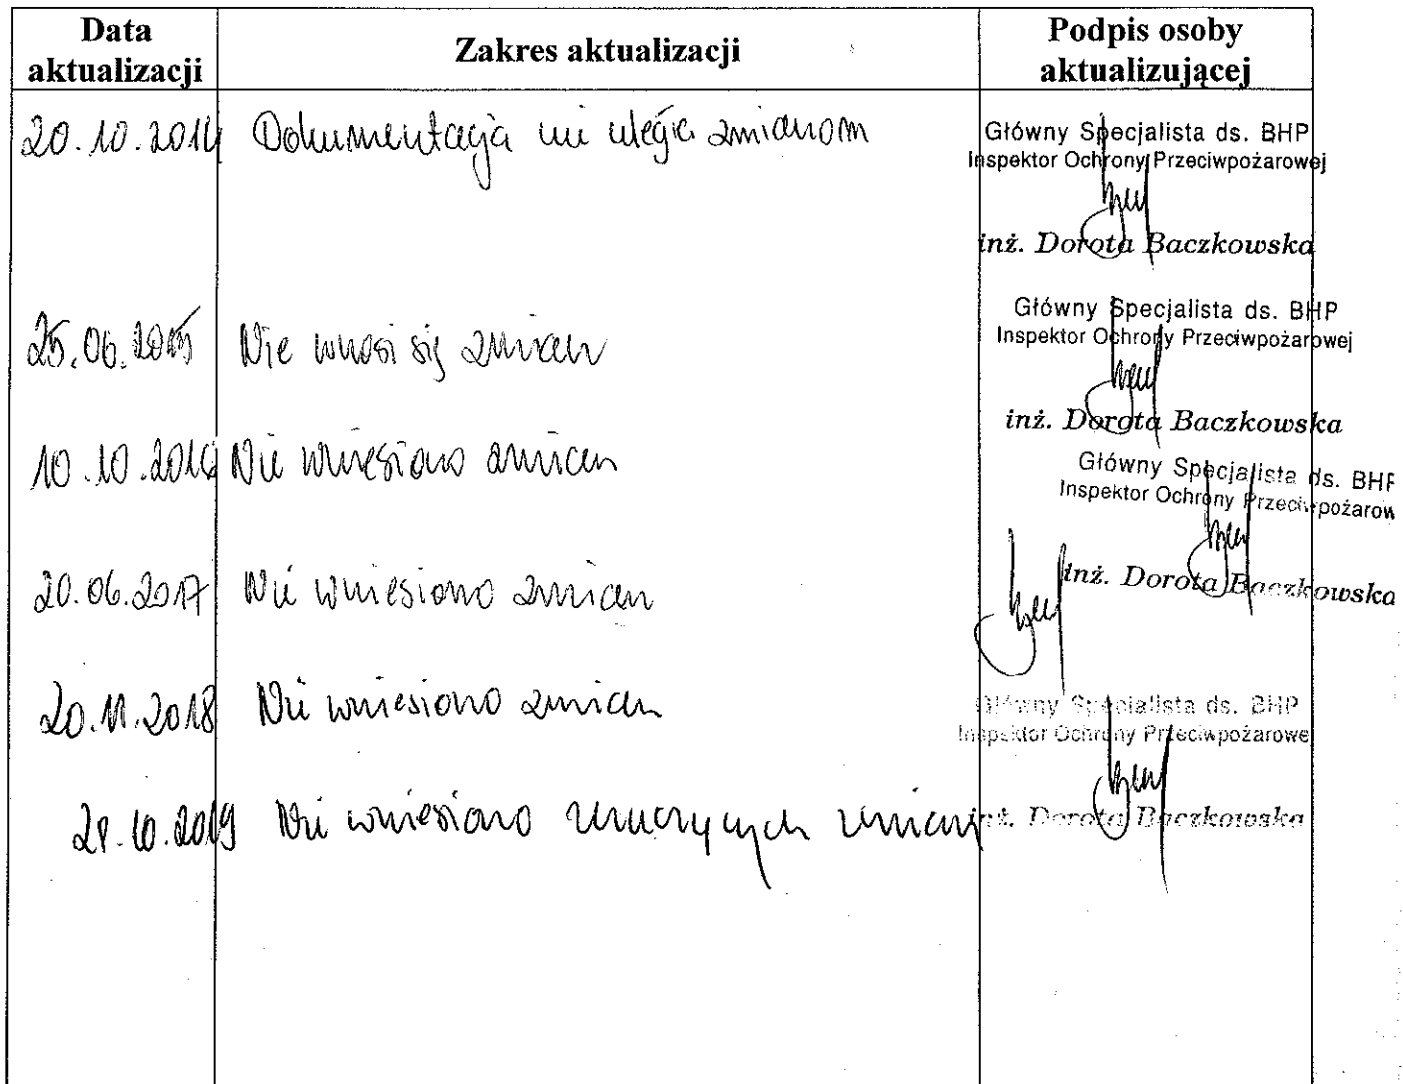 Data aktualizacji
Zakres aktualizacji
Podpis osoby aktualizującej
20.10.2014 Dokumentacja nie uległa zmianom
Główny Specjalista ds. BHP
Inspektor Ochrony Przeciwpożarowej
inż. Dorota Baczkowska
25.06.2015 Nie wnosi się zmian
Główny Specjalista ds. BHP
Inspektor Ochrony Przeciwpożarowej
inż. Dorota Baczkowska
10.10.2016 Nie wniesiono zmian
Główny Specjalista ds. BHP
Inspektor Ochrony Przeciwpożarow
inż. Dorota Baczkowska
20.06.2017 Nie wniesiono zmian
20.11.2018 Nie wniesiono zmian
Główny Specjalista ds. BHP
Inspektor Ochrony Przeciwpożarowe
inż. Dorota Baczkowska
10.2019 Nie wniesiono znaczących zmian